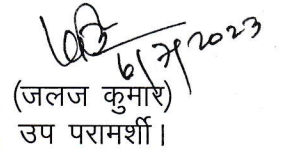 6/7/2023
(जलज कुमार)
उप परामर्शी।